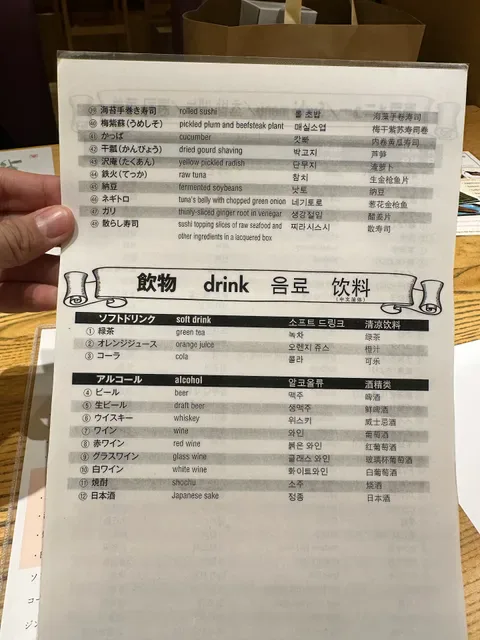 ㊴ 海苔手巻き寿司 rolled sushi 롤 초밥 海菜手卷寿司
㊵ 梅紫蘇(うめしそ) pickled plum and beefsteak plant 매실소엽 梅干紫苏寿司卷
㊶ かっぱ cucumber 캇빠 内卷黄瓜寿司
㊷ 干瓢(かんぴょう) dried gourd shaving 박고지 芦笋
㊸ 沢庵(たくあん) yellow pickled radish 단무지
㊹ 鉄火(てっか) raw tuna 참치 生金枪鱼片
㊺ 納豆 fermented soybeans 낫토 纳豆
㊻ ネギトロ tuna's belly with chopped green onion 네기토로 葱花金枪鱼
㊼ ガリ thinly-sliced ginger root in venegar 생강절임 醋姜片
㊽ 散らし寿司 sushi topping slices of raw seafood and 찌라시스시 散寿司
other ingredients in a lacquered box
飲物 drink 음료 饮料
ソフトドリンク soft drink 소프트 드링크 清凉饮料
① 緑茶 green tea 녹차 绿茶
② オレンジジュース orange juice 오렌지 쥬스 橙汁
③ コーラ cola 콜라 可乐
アルコール alcohol 알코올류 酒精类
④ ビール beer 맥주 啤酒
⑤ 生ビール draft beer 생맥주 鲜啤酒
⑥ ウイスキー whiskey 위스키 威士忌酒
⑦ ワイン wine 와인 葡萄酒
⑧ 赤ワイン red wine 붉은 와인 红葡萄酒
⑨ グラスワイン glass wine 글래스 와인 玻璃杯葡萄酒
⑩ 白ワイン white wine 화이트와인 白葡萄酒
⑪ 焼酎 shochu 소주 烧酒
⑫ 日本酒 Japanese sake 정종 日本酒